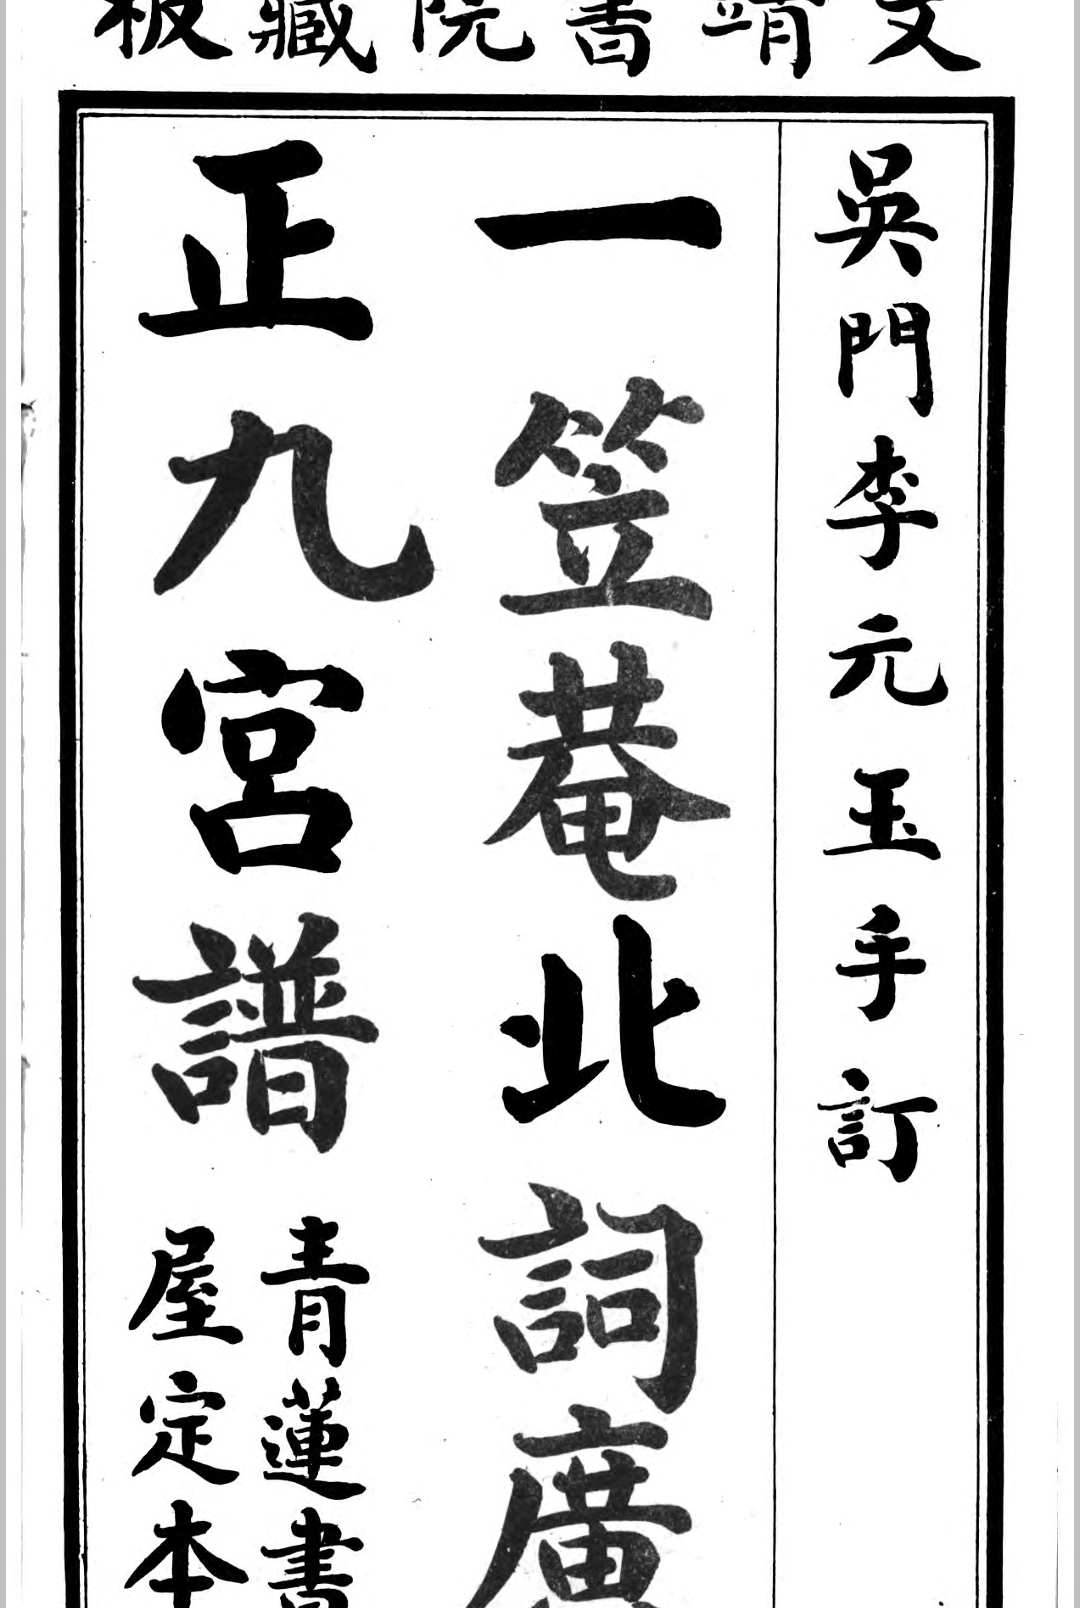 文靖書院藏板
吳門李元玉手訂
一笠菴北詞廣
正九宮譜
青蓮書
屋定本